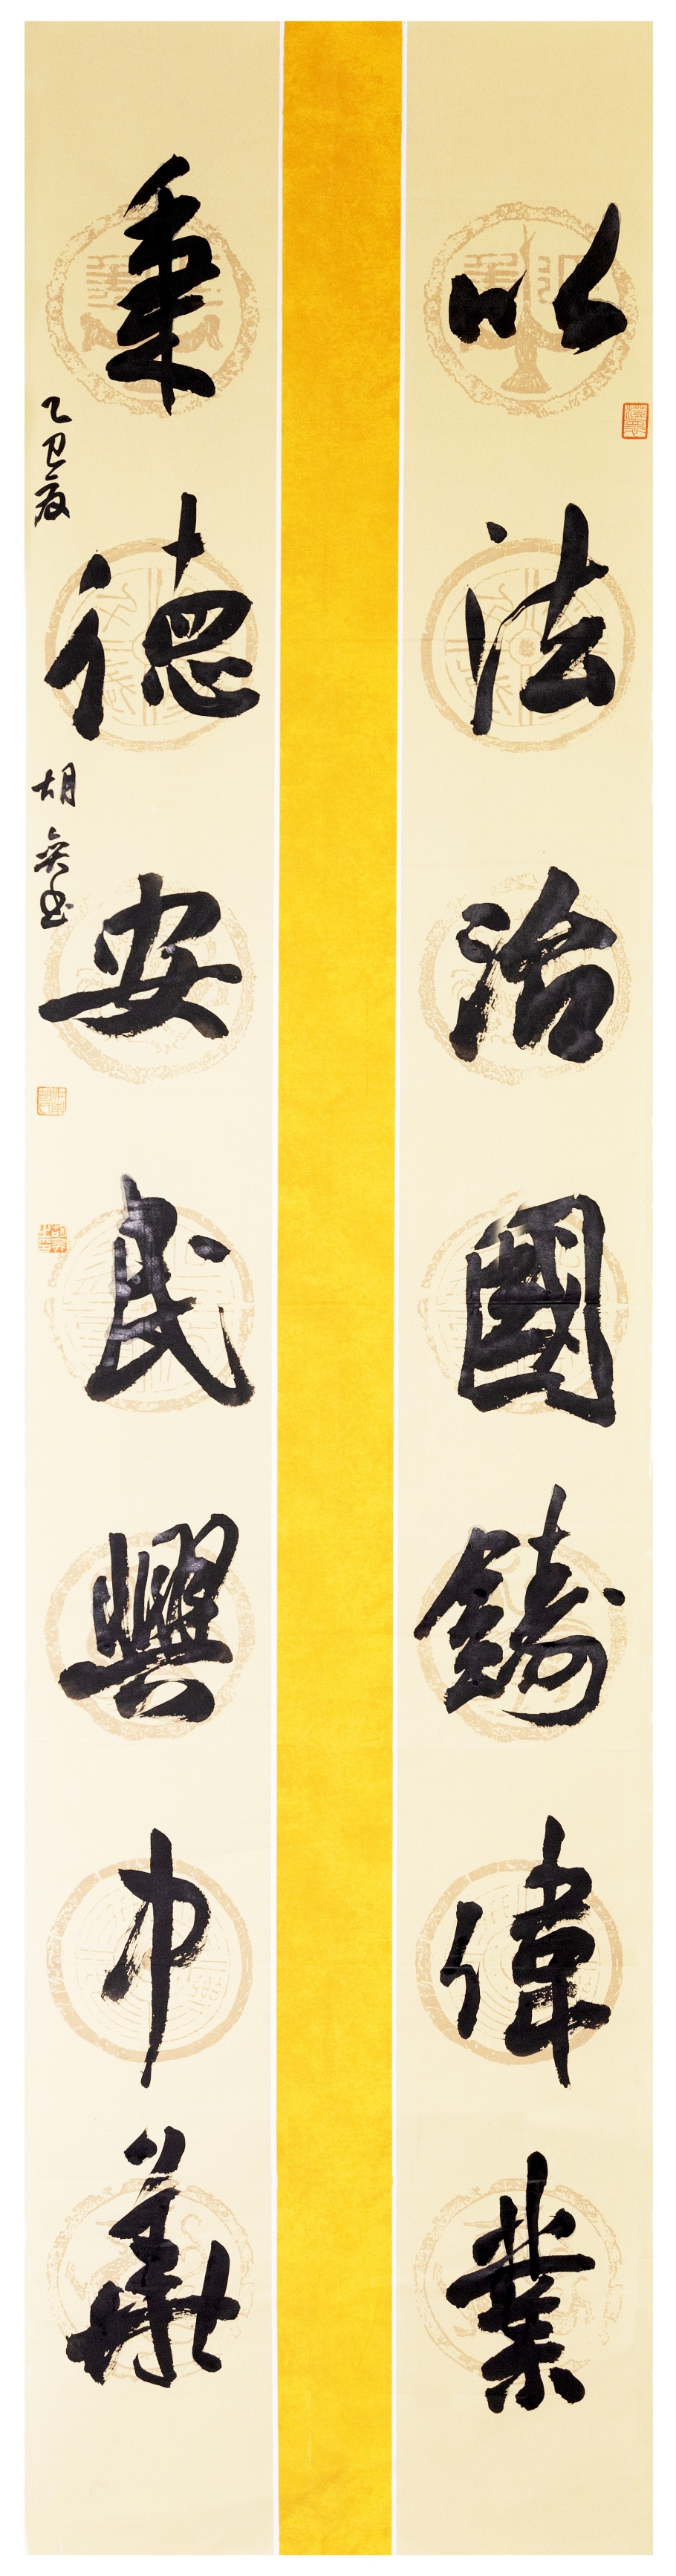 以法治國鑄偉業
秉德安民興中華
乙巳夏
胡奕書